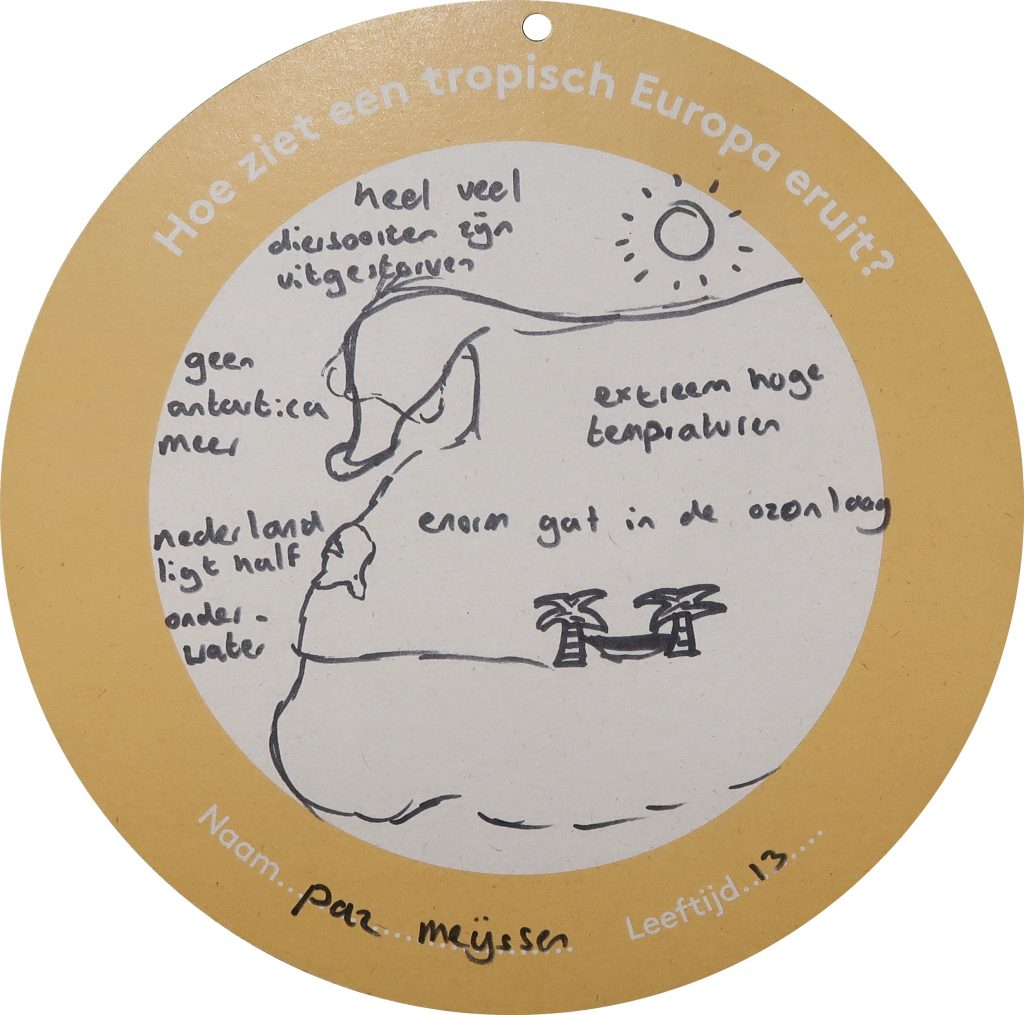 Hoe ziet een tropisch Europa eruit?
heel veel
diersoorten zijn
uitgestorven
geen
antartica
meer
extreem hoge
tempraturen
enorm gat in de ozonlaag
nederland
ligt half
onder-
water
Naam.... paz meijssen
Leeftijd... 13 .....